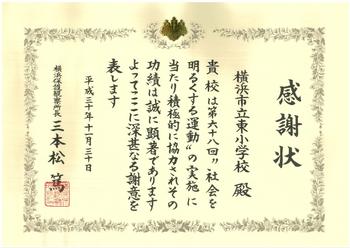 感謝状
横浜市立東小学校 殿
貴校は第六十八回〟社会を
明るくする運動〟の実施に
当たり積極的に協力されその
功績は誠に顕著であります
よってここに深甚なる謝意を
表します
平成三十年十一月三十日
横浜保護観察所長 三本松 篤